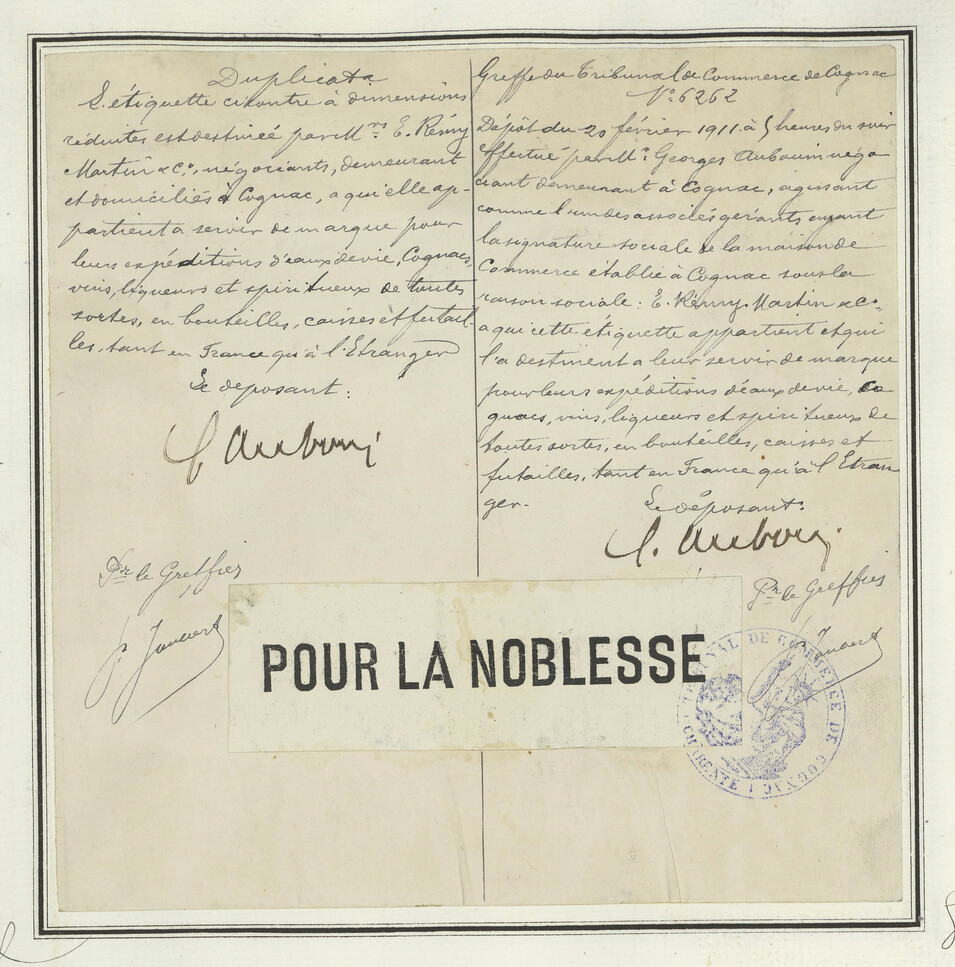 Duplicata
L'étiquette ci contre à dimensions
réduites est destinée par Mrs E. Rémy
Martin & Co, négociants, demeurant
et domiciliés à Cognac, a qu'elle ap-
partient à servir de marque pour
leurs expéditions d'eaux de vie, Cognacs,
vins, liqueurs et spiritueux de toutes
sortes, en bouteilles, caisses et futail-
les, tant en France qu'à l'Etranger
Le déposant:
Pr le Greffier
Greffe du Tribunal de Commerce de Cognac
No 6262
Dépôt du 20 février 1911 à 5 heures du soir
effectué par M. Georges Auboin négo
ciant demeurant à Cognac, agissant
comme l'un des associés gérants ayant
la signature sociale de la maison de
Commerce établie à Cognac sous la
raison sociale: E. Rémy Martin & Co.
a qui cette étiquette appartient et qui
l'a destinent a leur servir de marque
pour leurs expéditions d'eaux de vie, co
gnacs, vins, liqueurs et spiritueux de
toutes sortes, en bouteilles, caisses et
futailles, tant en France qu'à l'Etran
ger.
Le déposant:
Pr le Greffier
POUR LA NOBLESSE
TRIBUNAL DE COMMERCE DE COGNAC
CHARENTE